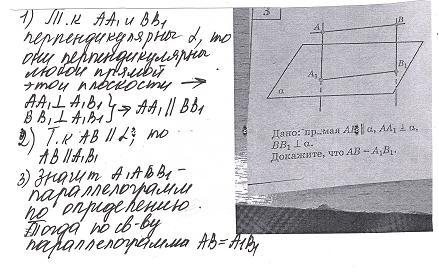 1) Т.к AA₁ и BB₁
перпендикулярны α, то
они перпендикулярны
любой прямой
этой плоскости →
AA₁ ⊥ A₁B₁ } → AA₁ ∥ BB₁
BB₁ ⊥ A₁B₁
2) Т.к AB ∥ α, то
AB ∥ A₁B₁
3) Значит A₁ABB₁ –
параллелограмм
по определению.
Тогда по св-ву
параллелограмма AB = A₁B₁
3
A
B
A₁
B₁
α
Дано: прямая AB ∥ α, AA₁ ⊥ α,
BB₁ ⊥ α.
Докажите, что AB = A₁B₁.